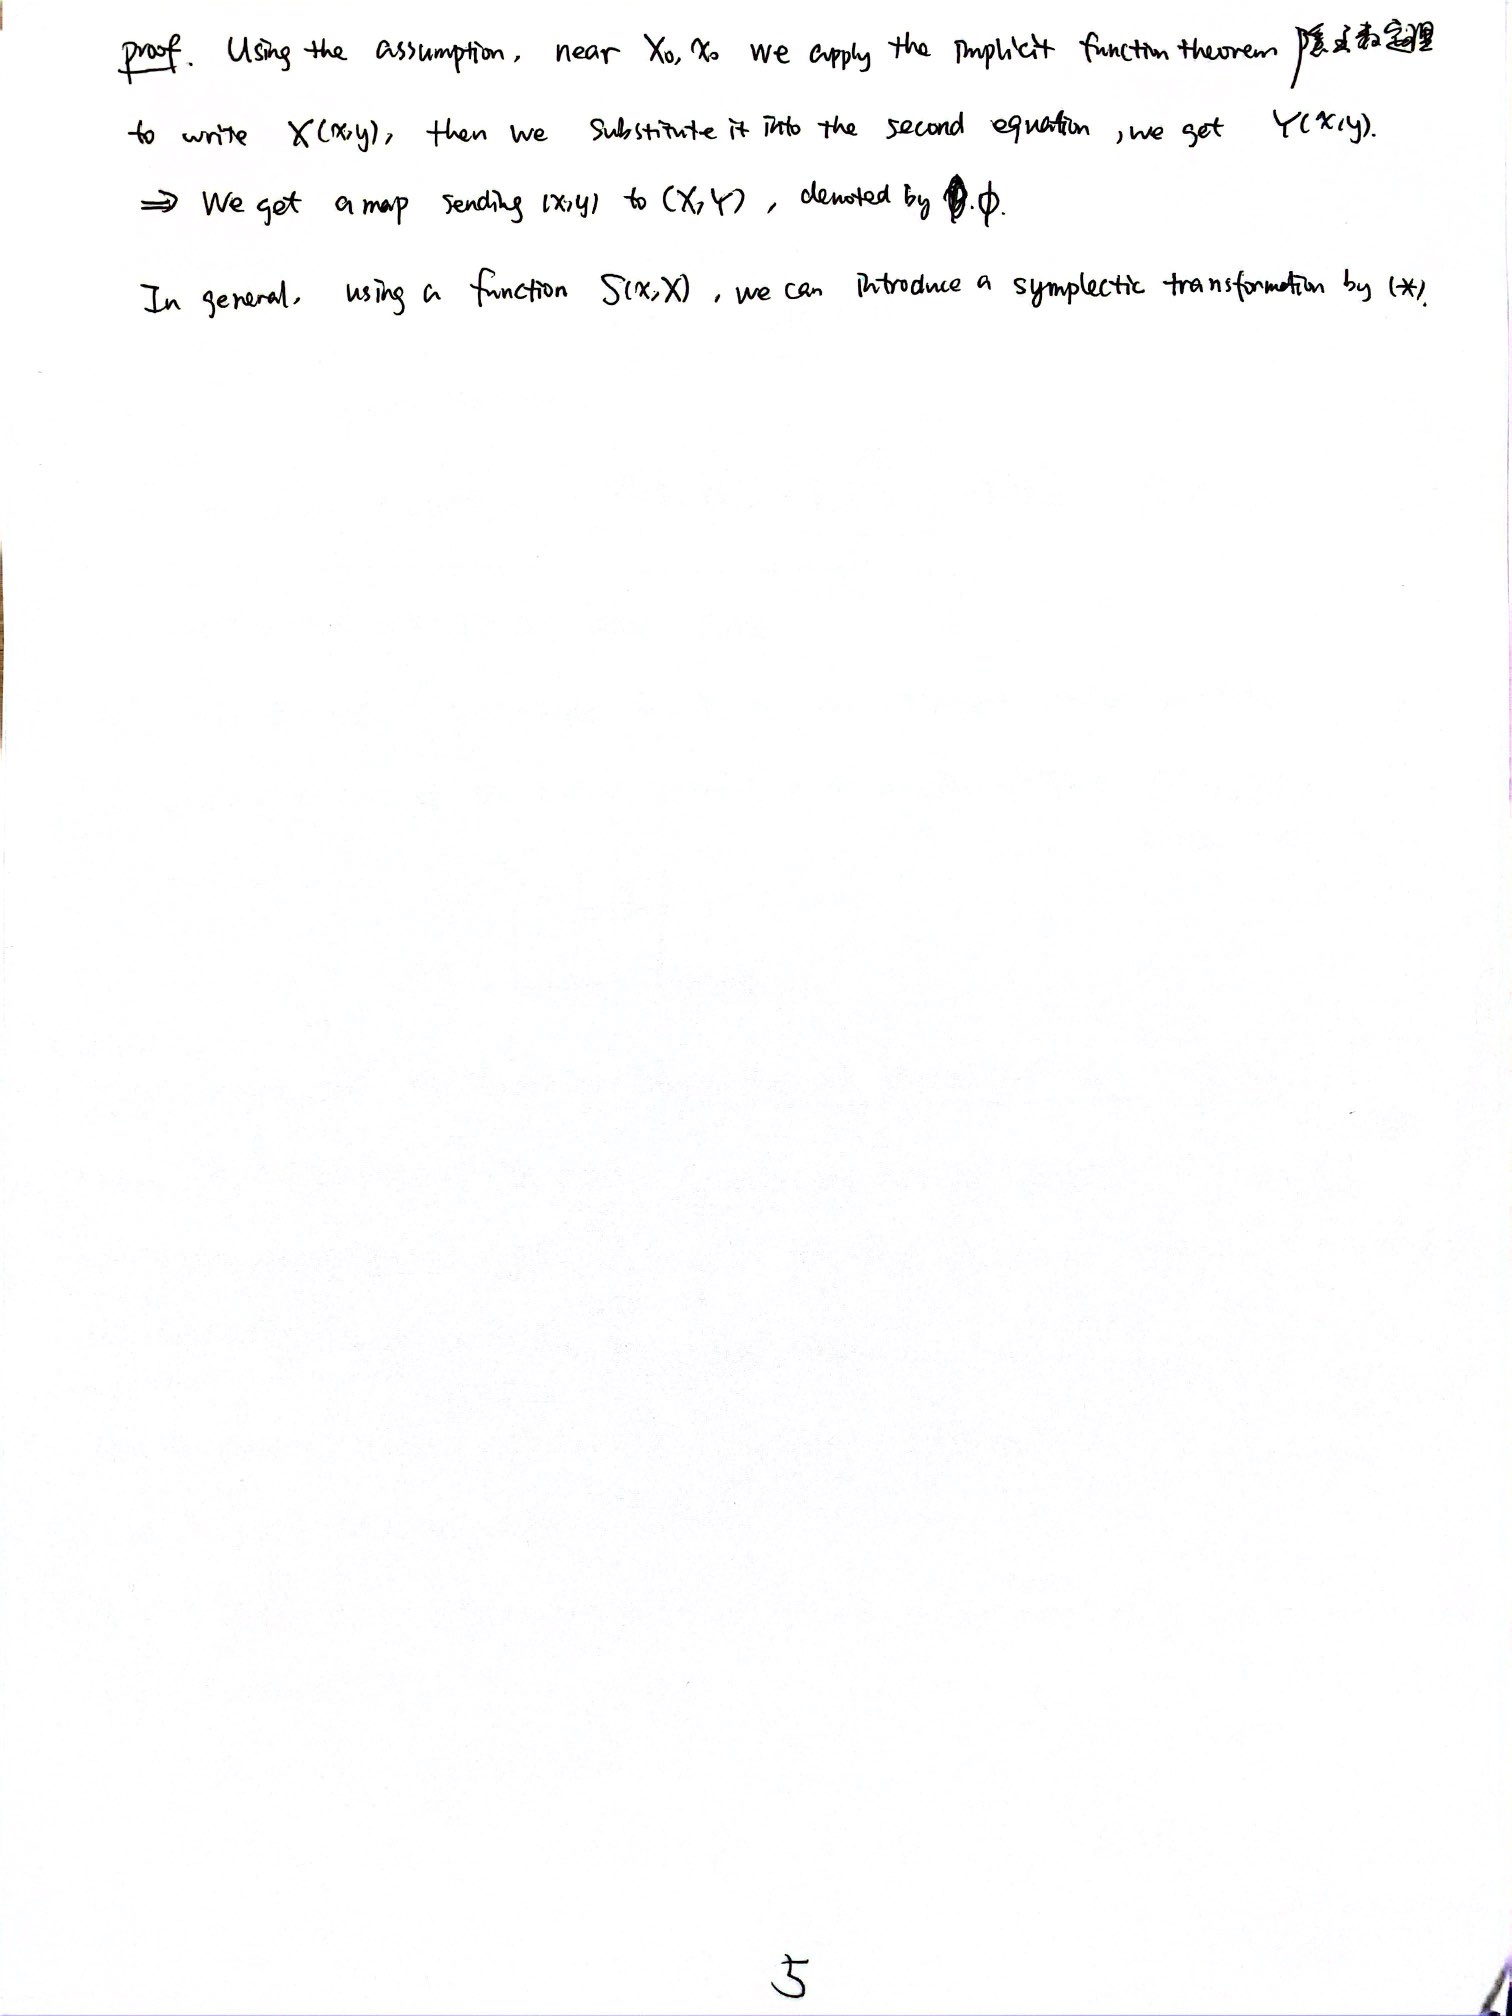 proof. Using the assumption, near X₀, x₀ we apply the implicit function theorem
to write X(x,y), then we substitute it into the second equation, we get Y(x,y).
⇒ We get a map sending (x,y) to (X,Y), denoted by φ.
In general, using a function S(x,X), we can introduce a symplectic transformation by (*).
5